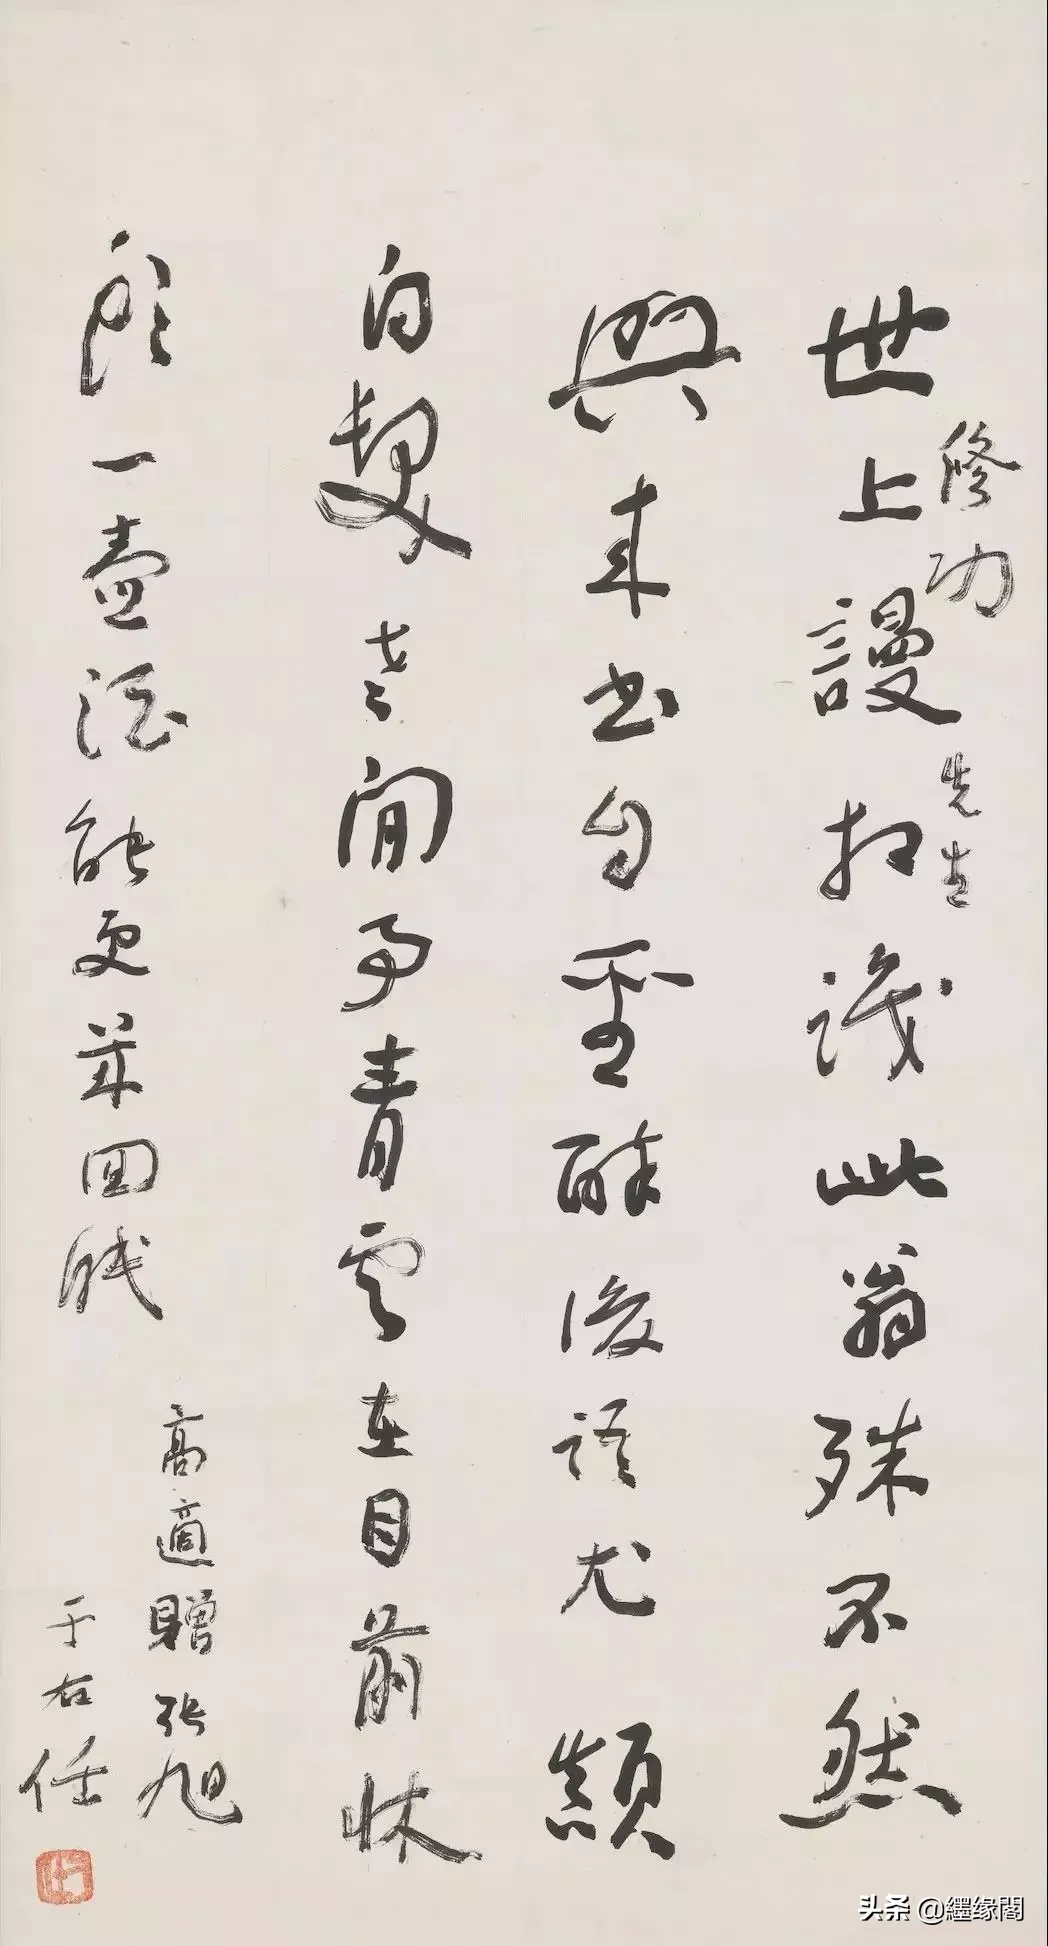 脩功先生
世上謾相識此翁殊不然
興来書自聖醉後語尤顛
白髮老閒事青雲在目前牀
頭一壺酒能更幾回眠
高適贈張旭
于右任
头条 @纆缘閣